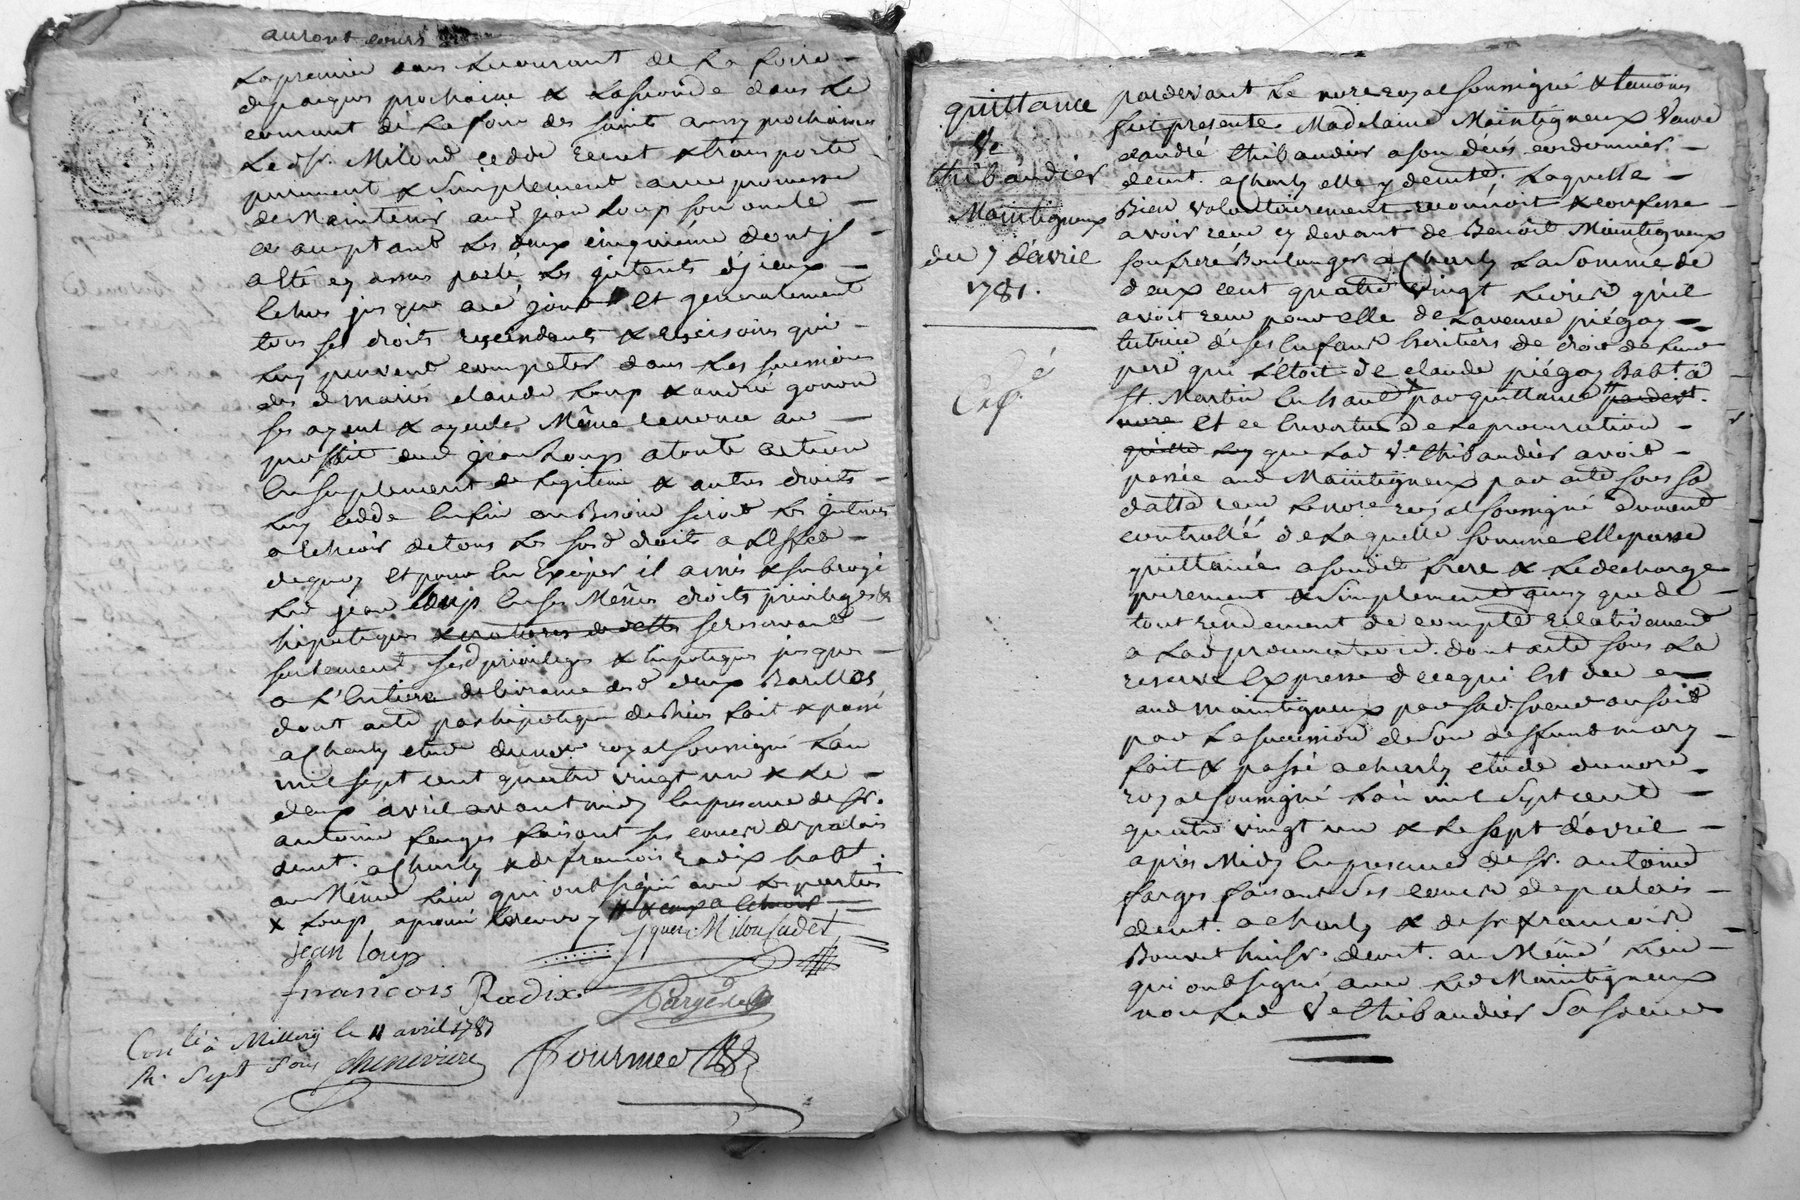 auront cours
La premiere dans Le courant de La foire
de paques prochaine & La seconde dans Le
courant de La foire des saints aussy prochaine
Led. sr. Milond cedde remet & transporte
purement & simplement avec promesse
de Maintenir aud. jean Loup son oncle
acceptant Les deux cinquième dont jl
a été cy dessus parlé Les jnterets d'jceux
échus jusque a ce jour Et generalement
tous ses droits rescindants & rescisoires qui
Luy peuvent competer dans Les successions
des d. mariés claude Loup & andrée gonon
ses ayeul & ayeule Même renonce au
proffit dud. jean Loup a toute action
En suplement de Legitime & autres droits
Luy cedde Enfin au Besoin seroit Les jnterets
a Echeoir de tous Les susd. droits a L'effet
de quoy Et pour En Exiger il a mis & subrogé
Led. jean Loup En ses Mêmes droits privileges &
hipoteques se reservant
seulement sesd. privileges & hipoteques jusques
a L'Entiere delivrance desd. deux Barilles
dont acte par hipoteque de Biens fait & passé
a Charly etude du nore. royal soussigné L'an
mil sept cent quatre vingt un & Le
deux avril avant midy En presence de sr.
antoine farges faisant ses cours de palais
demt. a Charly & de francois radix habt.
au Même Lieu qui ont signé avec Les parties
& Loup a promis
jean loup
Milon Cadet
francois Radix
farges
Conlé à Millery le 11 avril 1781
R. Sept Sous Cheneviere
fournier
quittance
Ve
thibaudier
Maintigneux
du 7 d'avril
1781.
Exp.é
pardevant Le nore royal soussigné & temoins
fut presente Madelaine Maintigneux Veuve
d'andré thibaudier a son décès cordonnier
demt. a Charly elle y demte. Laquelle
Bien volontairement reconnoit & confesse
avoir recu cy devant de Benoit Maintigneux
son frere Boulanger a Charly La somme de
deux cent quatre vingt Livres qu'il
avoit recu pour elle de La veuve piégay
tutrice de ses Enfans heritiers de droit de Leur
pere qui L'étoit de claude piégay habt. a
St. Martin En haut par quittance pardevt.
nore Et ce En vertu de La procuration
quelle Luy que Lad. Ve thibaudier avoit
passée aud Maintigneux par acte sous sa
datte recu Le nore royal soussigné dument
controllé de Laquelle somme elle passe
quittance a sondit frere & Le decharge
purement & simplement ainsy que de
tout rendement de compte relativement
a Lad. procuration. dont acte sous La
reserve Expresse de ce qui Est du a
aud maintigneux par sad. soeur
par La succession de son deffunt mary
fait & passé a charly etude du nore
royal soussigné L'an mil sept cent
quatre vingt un & Le sept d'avril
après Midy En presence de sr. antoine
farges faisant ses cours de palais
demt. a charly & de sr francois
Bouvet huissr. demt. au Même Lieu
qui ont signé avec Led Maintigneux
non Lad Ve thibaudier sa soeur